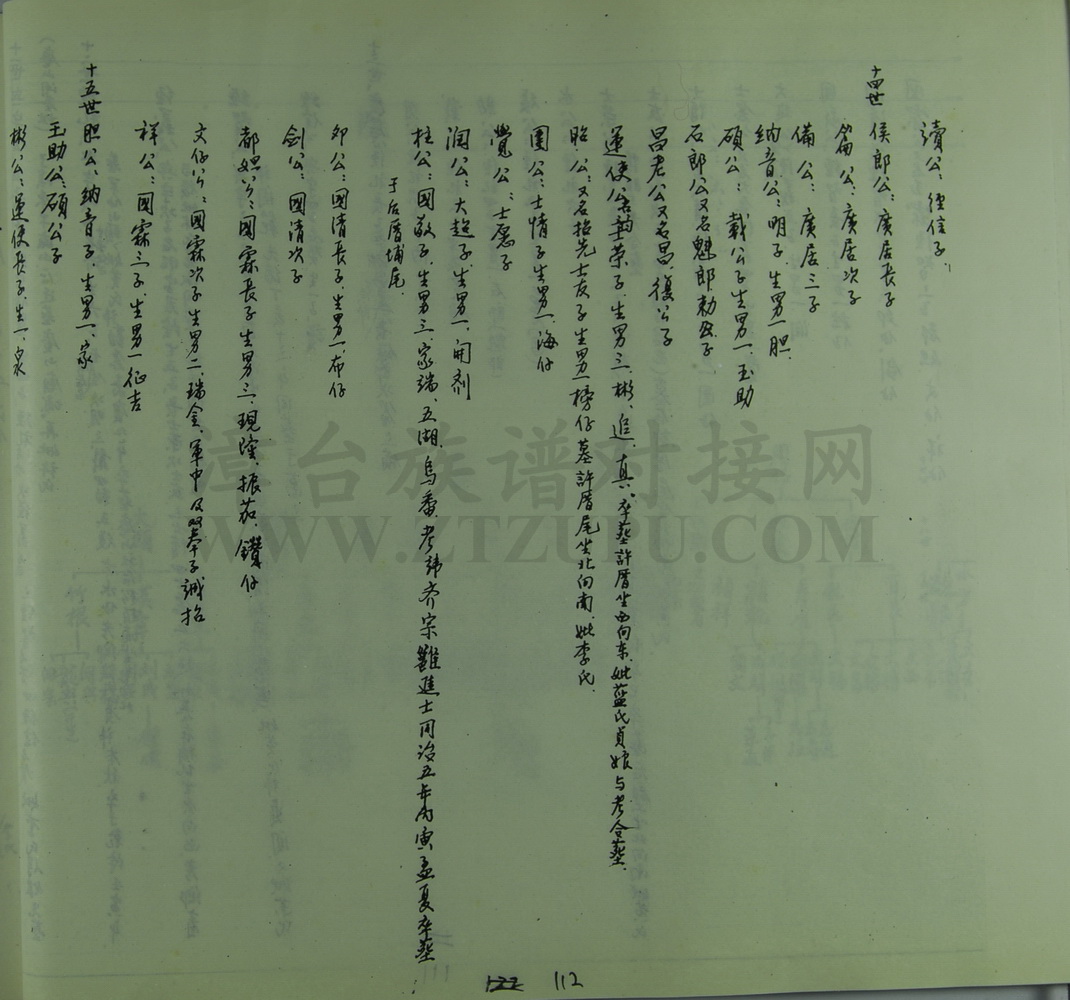 讀公：径信子
十四世 侯郎公：廣居長子
篇公：廣居次子
備公：廣居三子
纳音公：明子、生男一胆
碩公：載公子生男一、玉助
石郎公又名魁郎勅公子
昌老公又名昌、復公子
運使公 榮子、生男三、彬、追、真、卒葬許厝坐西向东、妣蓝氏貞娘与考合葬、
昭公：又名招先士友子生男一榜仔墓許厝尾坐北向南、妣李氏、
圍公：士情子生男一、海仔
覺公：士愿子
润公：大超子生男一、開剂
柱公：國敬子、生男三、家端、五湖、烏番、考諱齐宗 進士同治五年丙寅孟夏卒葬
于后厝埔尾
卯公：國清長子、生男一布仔
劍公：國清次子
都妲公：國霖長子生男三、現陸、振茹、鑽仔
文仔公：國霖次子生男二、瑞金、軍中及 奉子誠招
祥公：國霖三子、生男一征吉
十五世 胆公、纳音子、生男一、家
玉助公、碩公子
彬公：運使長子、生一、泉
漳台族谱对接网
WWW.ZTZUPU.COM
122 112